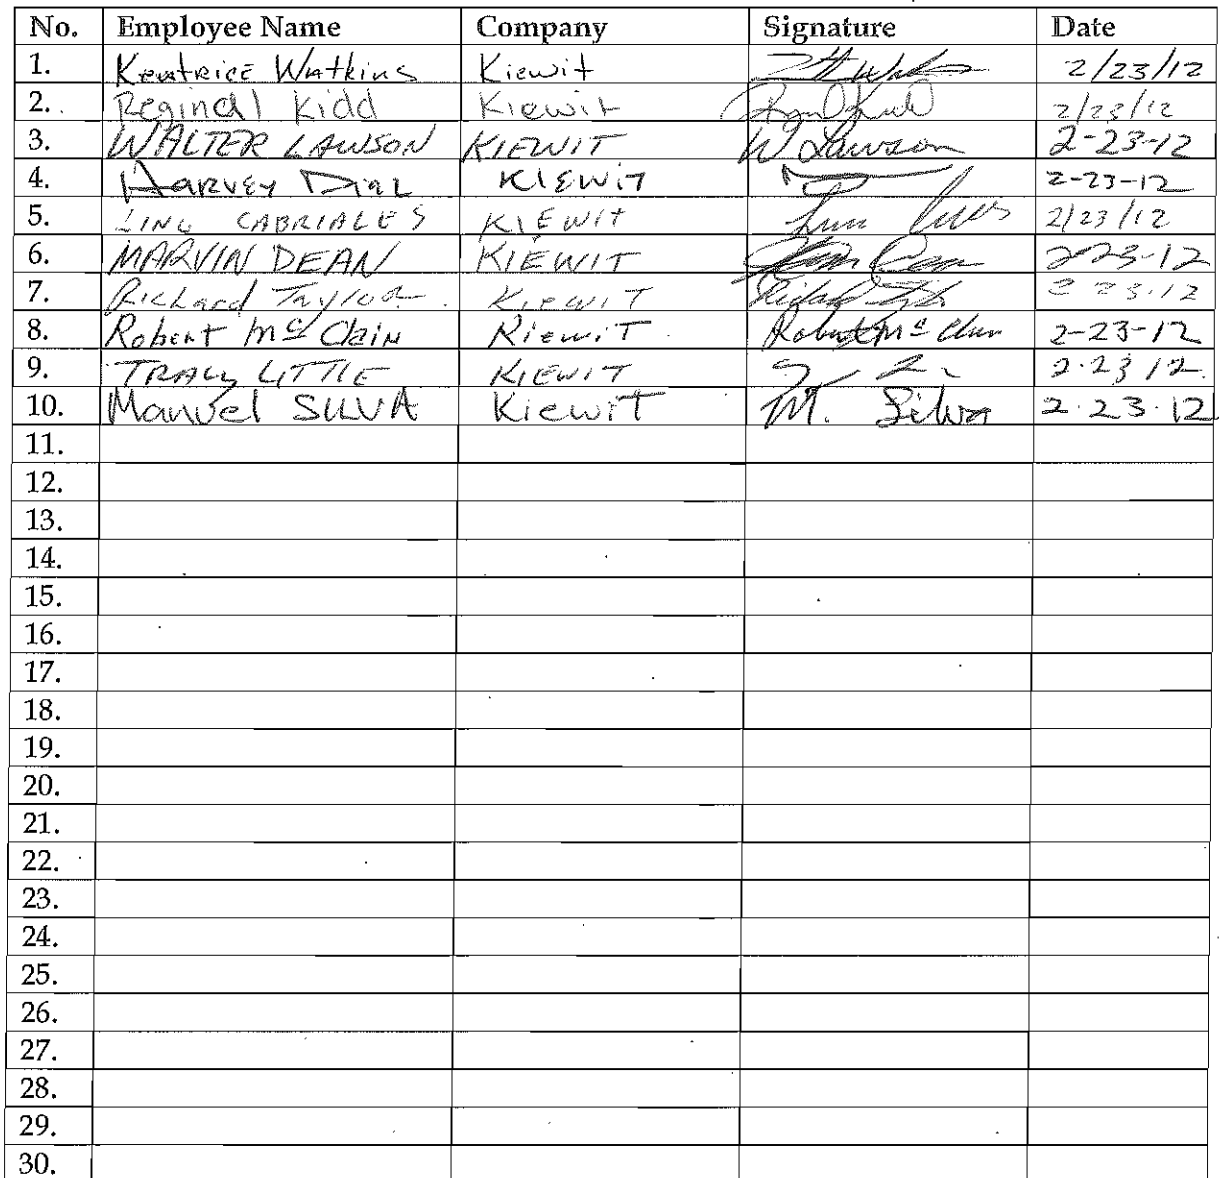 No. Employee Name Company Signature Date
1. Kentrice Watkins Kiewit 2/23/12
2. Reginal Kidd Kiewit 2/23/12
3. WALTER LAWSON KIEWIT W Lawson 2-23-12
4. HARVEY DIAL KIEWIT 2-23-12
5. LINO CABRIALES KIEWIT 2/23/12
6. MARVIN DEAN KIEWIT 2-23-12
7. Richard Taylor KIEWIT 2 23.12
8. Robert Mc Clain KiewiT 2-23-12
9. TRACY LITTLE KIEWIT 2.23 12
10. Manuel SILVA KiewiT M. Silva 2.23.12
11.
12.
13.
14.
15.
16.
17.
18.
19.
20.
21.
22.
23.
24.
25.
26.
27.
28.
29.
30.